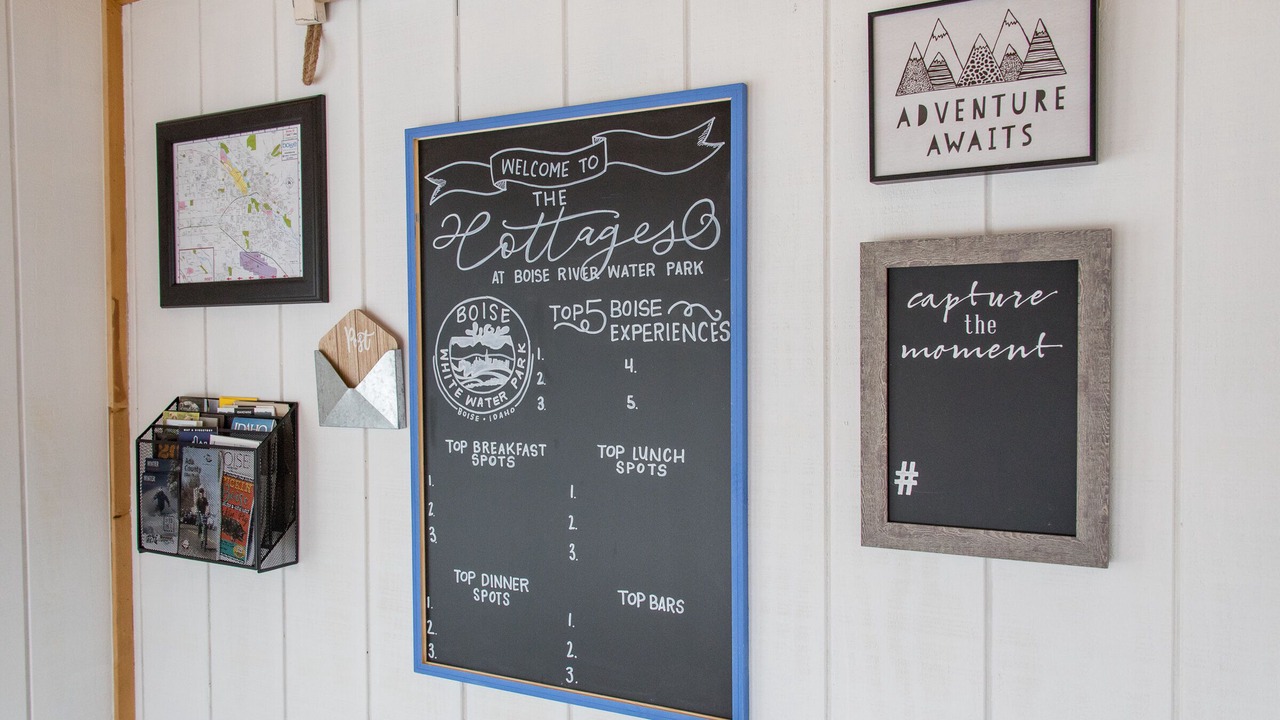 WELCOME TO
THE
Cottages
AT BOISE RIVER WATER PARK
BOISE
WHITE WATER PARK
BOISE • IDAHO
TOP 5 BOISE
EXPERIENCES
1.
2.
3.
4.
5.
TOP BREAKFAST
SPOTS
1.
2.
3.
TOP LUNCH
SPOTS
1.
2.
3.
TOP DINNER
SPOTS
1.
2.
3.
TOP BARS
1.
2.
3.
Post
IDAHO
Ada
County
BOISE
ADVENTURE
AWAITS
capture
the
moment
#